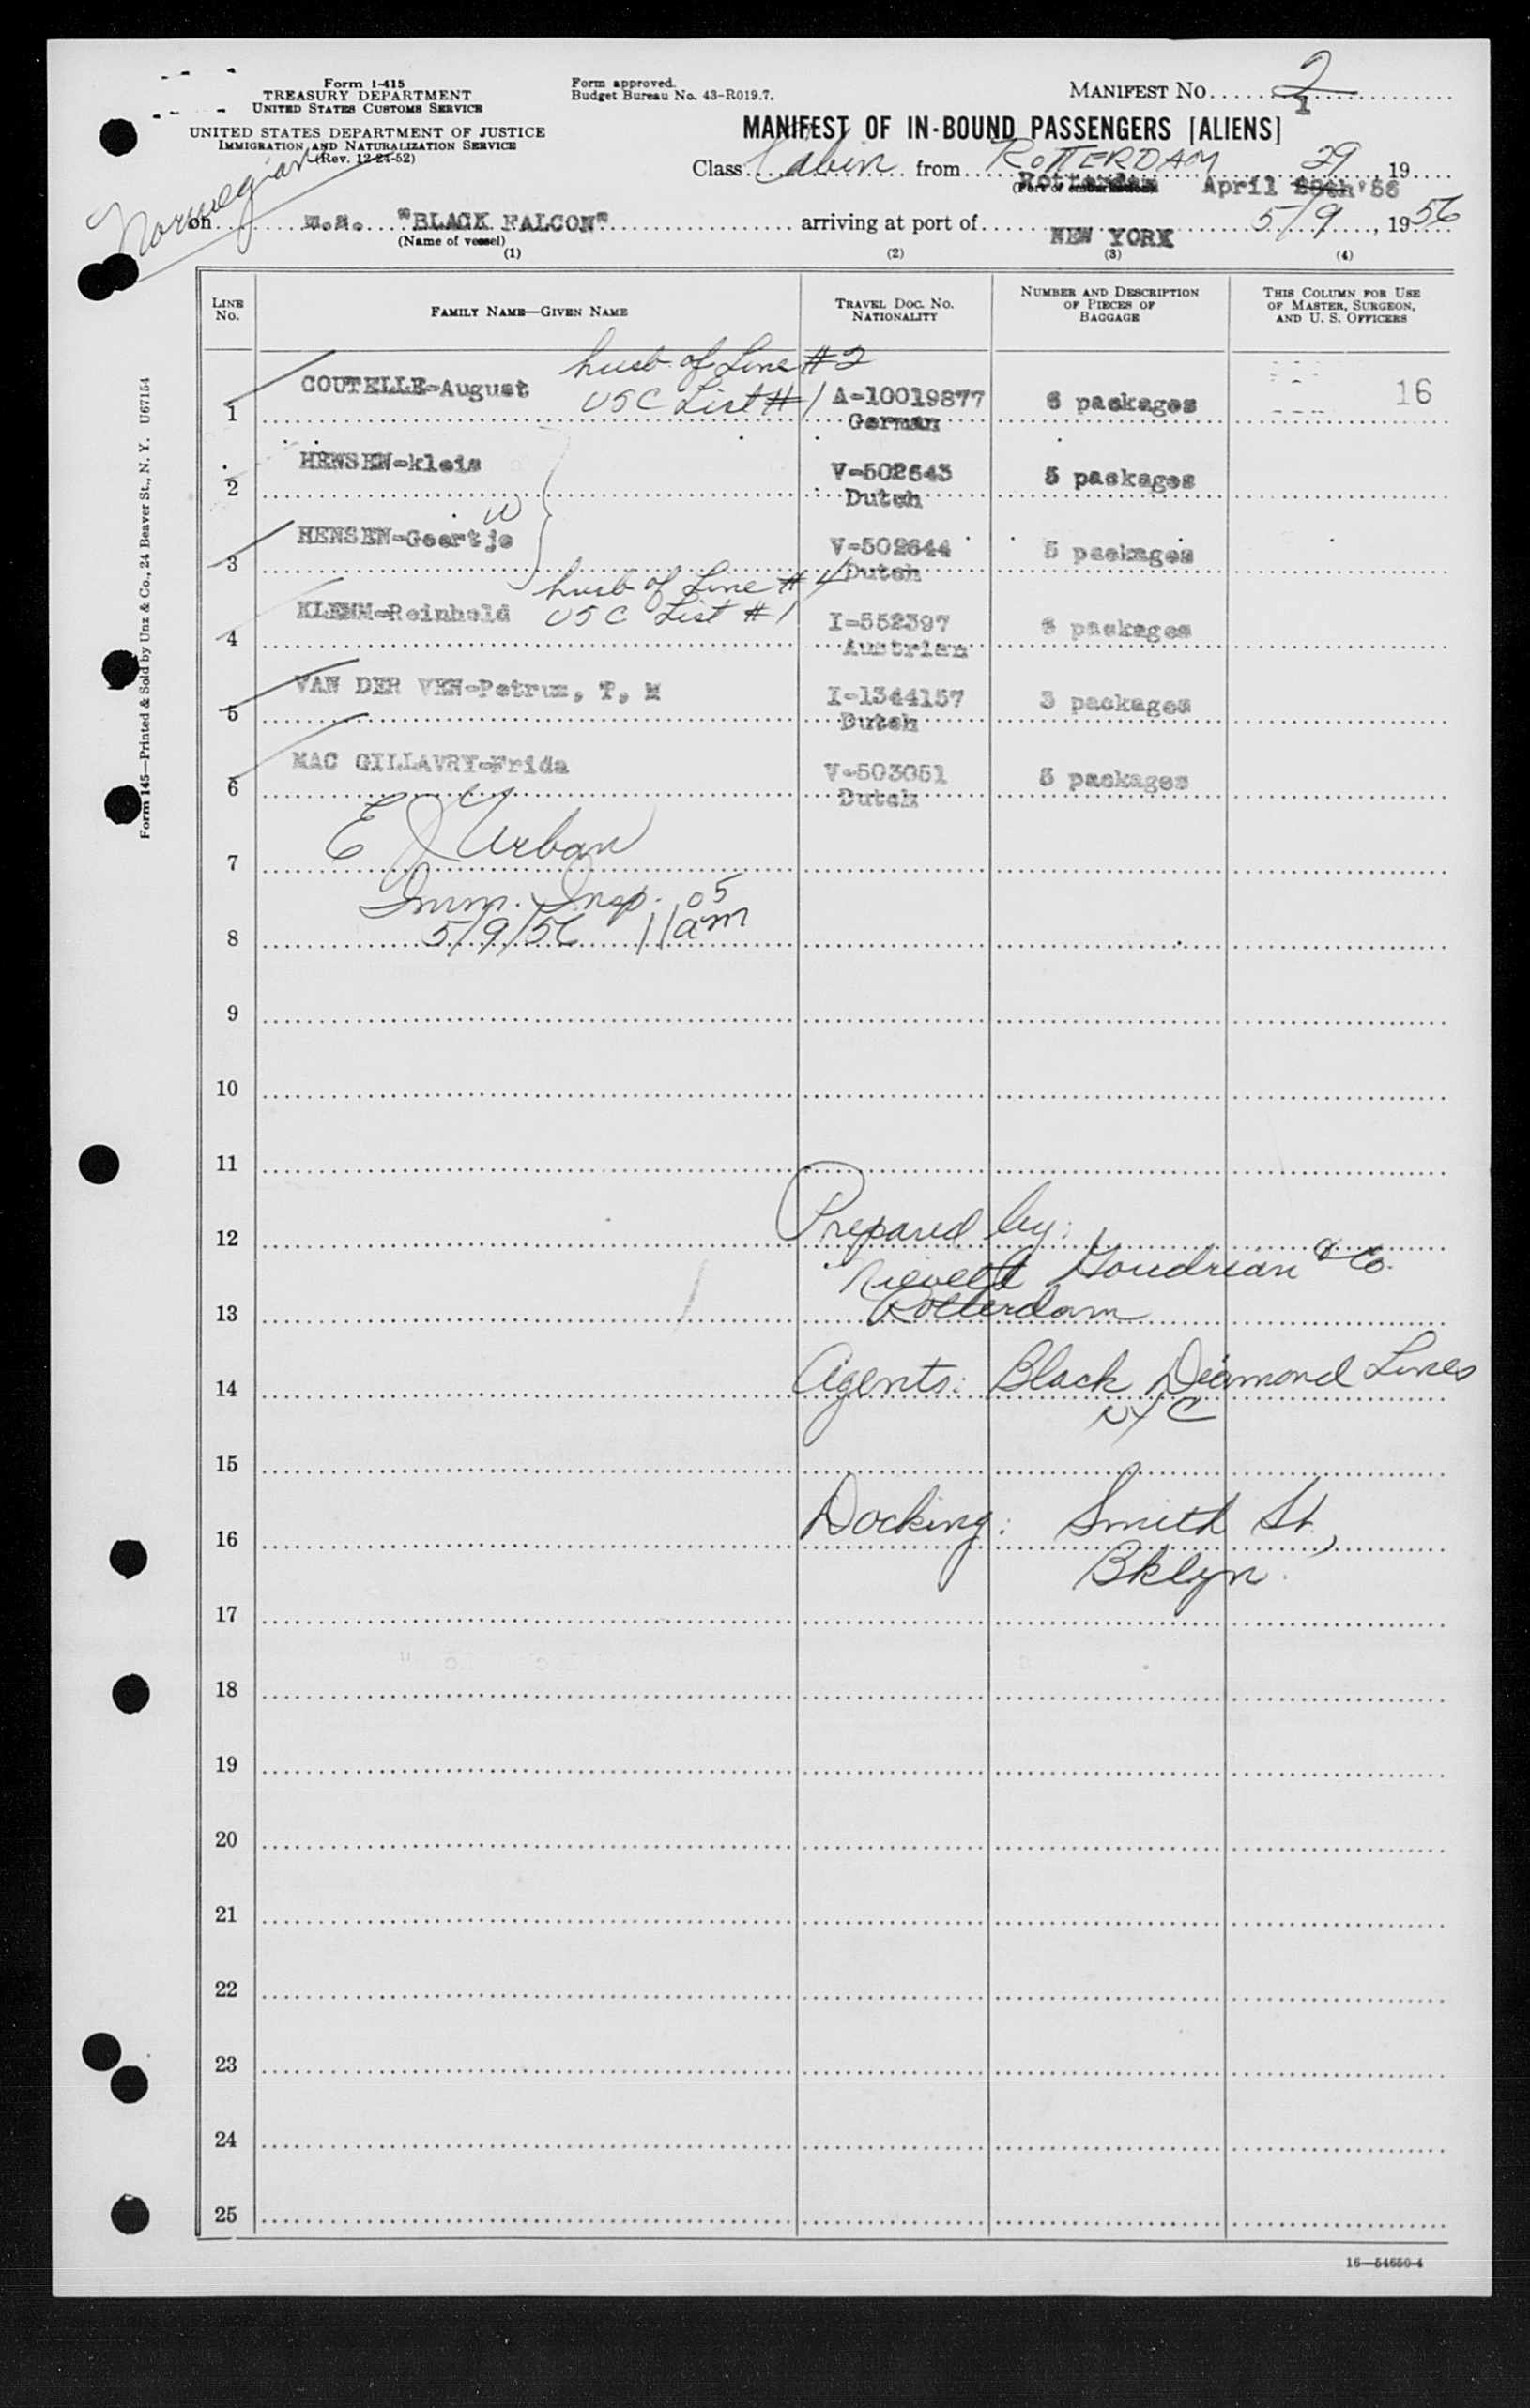 Form I-415
TREASURY DEPARTMENT
UNITED STATES CUSTOMS SERVICE
UNITED STATES DEPARTMENT OF JUSTICE
IMMIGRATION AND NATURALIZATION SERVICE
(Rev. 12-24-52)
Form approved.
Budget Bureau No. 43-R019.7.
MANIFEST NO. 2
1
MANIFEST OF IN-BOUND PASSENGERS [ALIENS]
Class Cabin from ROTTERDAM 29, 19
Rotterdam April '56
(Port of embarkation)
Norwegian
on m.s. "BLACK FALCON" arriving at port of NEW YORK 5/9, 1956
(Name of vessel)
(1) (2) (3) (4)
LINE NO. FAMILY NAME—GIVEN NAME TRAVEL DOC. NO. NATIONALITY NUMBER AND DESCRIPTION OF PIECES OF BAGGAGE THIS COLUMN FOR USE OF MASTER, SURGEON, AND U. S. OFFICERS
husb of Line #2
1 COUTELLE-August USC List #1 A-10019877 German 6 packages 16
2 HENSEN-kleis V-502643 Dutch 5 packages
W
3 HENSEN-Geertje V-502644 Dutch 5 packages
husb of Line #4
4 KLEMM-Reinhold USC List #1 I-552397 Austrian 6 packages
5 VAN DER VEN-Petrus, T, M I-1344157 Dutch 3 packages
6 MAC GILLAVRY-Frida V-503051 Dutch 5 packages
7 E J Urban
Imm. Insp. 05
8 5/9/56 11am
9
10
11
12 Prepared by:
Nievelt Goudrian & Co.
13 Rotterdam
14 Agents: Black Diamond Lines
NYC
15
16 Docking: Smith St.,
Bklyn.
17
18
19
20
21
22
23
24
25
Form 145—Printed & Sold by Unz & Co., 24 Beaver St., N. Y. U67154
16—54650-4